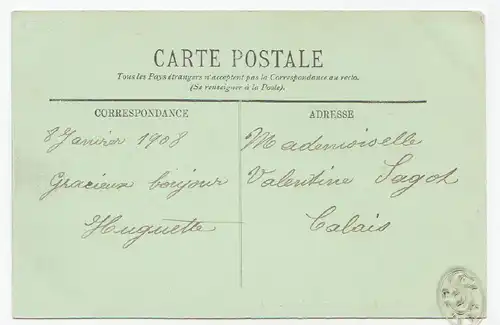 CARTE POSTALE
Tous les Pays étrangers n'acceptent pas la Correspondance au recto.
(Se renseigner à la Poste).
CORRESPONDANCE
8 Janvier 1908
Gracieux bonjour
Huguette
ADRESSE
Mademoiselle
Valentine Sagot
Calais